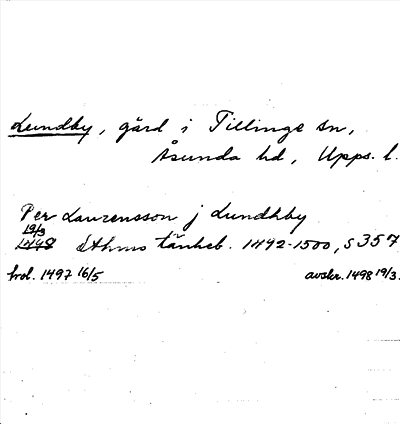 Lundby, gård i Tillinge sn,
Åsunda hd, Upps. l.
Per Laurensson j Lundhby
19/3
1498 Sthms tänkeb. 1492-1500, s 357
hol. 1497 16/5 avskr. 1498 19/3.